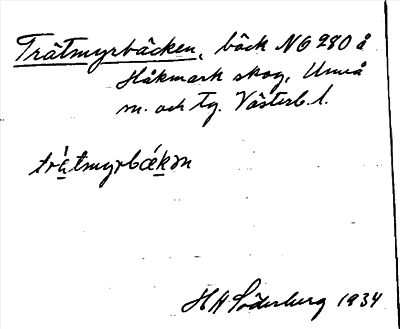 Tråtmyrbäcken, bäck NG 280 å
Håkmark skog, Umeå
sn. och Tg. Västerb. l.
tràtmyrbǽkən
HA Söderberg 1934